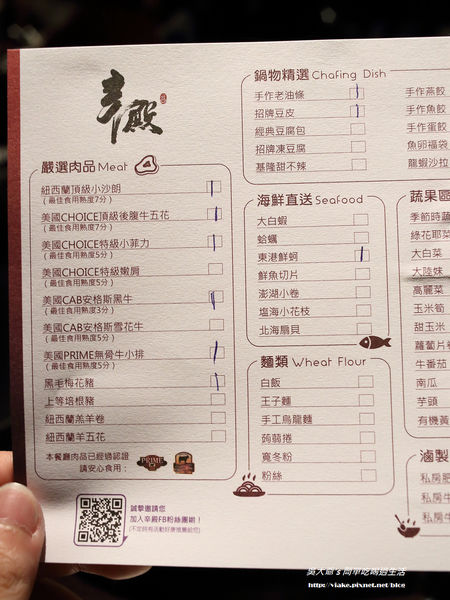 辛殿
嚴選肉品 Meat
紐西蘭頂級小沙朗
( 最佳食用熟度7分 )
美國CHOICE頂級後腹牛五花
( 最佳食用熟度7分 )
美國CHOICE特級小菲力
( 最佳食用熟度5分 )
美國CHOICE特級嫩肩
( 最佳食用熟度5分 )
美國CAB安格斯黑牛
( 最佳食用熟度3分 )
美國CAB安格斯雪花牛
( 最佳食用熟度5分 )
美國PRIME無骨牛小排
( 最佳食用熟度5分 )
黑毛梅花豬
上等培根豬
紐西蘭羔羊卷
紐西蘭羊五花
本餐廳肉品已經過認證
請安心食用：
PRIME
誠摯邀請您
加入辛殿FB粉絲團喲！
(不定時有活動好康推薦給您)
鍋物精選 Chafing Dish
手作老油條
招牌豆皮
經典豆腐包
招牌凍豆腐
基隆甜不辣
海鮮直送 Seafood
大白蝦
蛤蠣
東港鮮蚵
鮮魚切片
澎湖小卷
塩海小花枝
北海扇貝
麵類 Wheat Flour
白飯
王子麵
手工烏龍麵
蒟蒻捲
寬冬粉
粉絲
手作燕餃
手作魚餃
手作蛋餃
魚卵福袋
龍蝦沙拉
蔬果區
季節時蔬
綠花耶菜
大白菜
大陸妹
高麗菜
玉米筍
甜玉米
蘿蔔片
牛番茄
南瓜
芋頭
有機黃
滷製
私房肥
私房牛
私房牛
吳大爺's 簡單吃喝過生活
http://viake.pixnet.net/blog